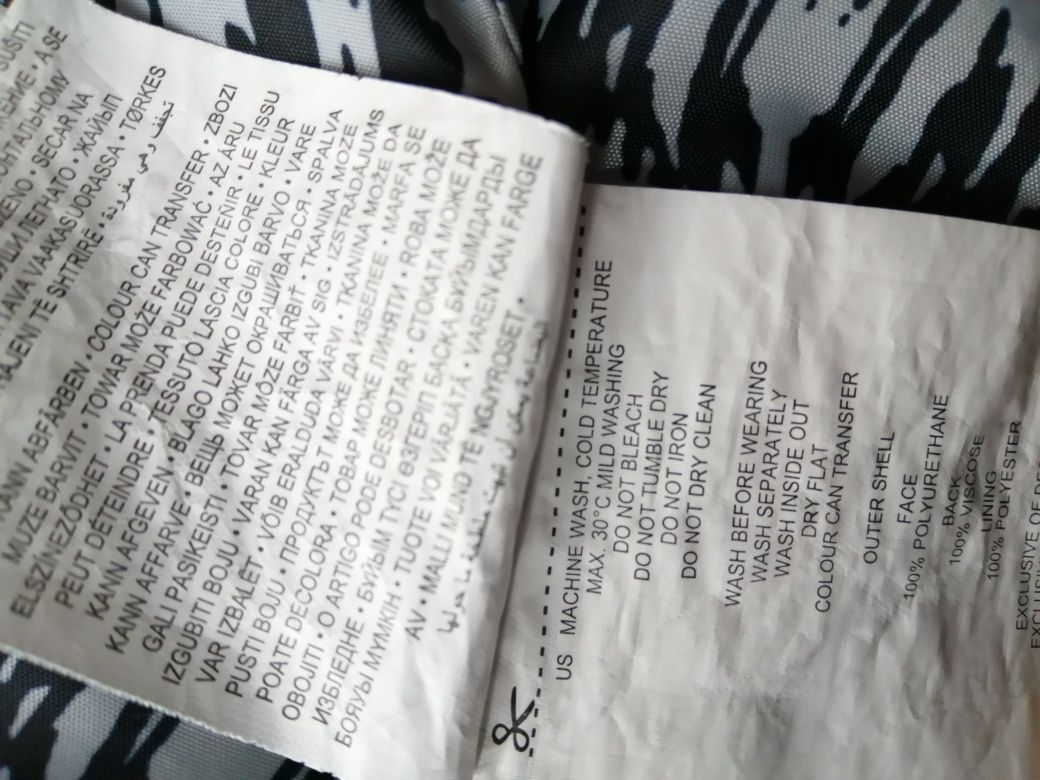 SUŠITI
• A SE
• SECAR NA
ЛЕГНАТО • ЖАЙЫП
TAVA VAAKASUORASSA • TØRKES
TË SHTRIRE •
KANN ABFÄRBEN • COLOUR CAN TRANSFER • ZBOZI
MUZE BARVIT • TOWAR MOŻE FARBOWAĆ • AZ ÁRU
ELSZÍNEZŐDHET • LA PRENDA PUEDE DESTEÑIR • LE TISSU
PEUT DÉTEINDRE • TESSUTO LASCIA COLORE • KLEUR
KANN AFGEVEN • BLAGO LAHKO IZGUBI BARVO • VARE
KANN AFFARVE • ВЕЩЬ МОЖЕТ ОКРАШИВАТЬСЯ • SPALVA
GALI PASIKEISTI • TOVAR MÔŽE FARBIŤ • TKANINA MOZE
IZGUBITI BOJU • VARAN KAN FÄRGA AV SIG • IZSTRĀDĀJUMS
VAR IZBALĒT • VÕIB ERALDUDA VÄRVI • TKANINA MOŽE DA
PUSTI BOJU • ПРОДУКТЪТ МОЖЕ ДА ИЗБЕЛЕЕ • MARFA SE
POATE DECOLORA • ТОВАР МОЖЕ ЛИНЯТИ • ROBA MOŽE
OBOJITI • O ARTIGO PODE DESBOTAR • СТОКАТА МОЖЕ ДА
ИЗБЛЕДНЕ • БҰЙЫМ ТҮСІ ӨЗГЕРІП БАСҚА БҰЙЫМДАРДЫ
БОЯУЫ МҮМКІН • TUOTE VOI VÄRJÄTÄ • VAREN KAN FARGE
AV • MALLI MUND TË NGJYROSET •
US MACHINE WASH, COLD TEMPERATURE
MAX. 30°C MILD WASHING
DO NOT BLEACH
DO NOT TUMBLE DRY
DO NOT IRON
DO NOT DRY CLEAN
WASH BEFORE WEARING
WASH SEPARATELY
WASH INSIDE OUT
DRY FLAT
COLOUR CAN TRANSFER
OUTER SHELL
FACE
100% POLYURETHANE
BACK
100% VISCOSE
LINING
100% POLYESTER
EXCLUSIVE OF